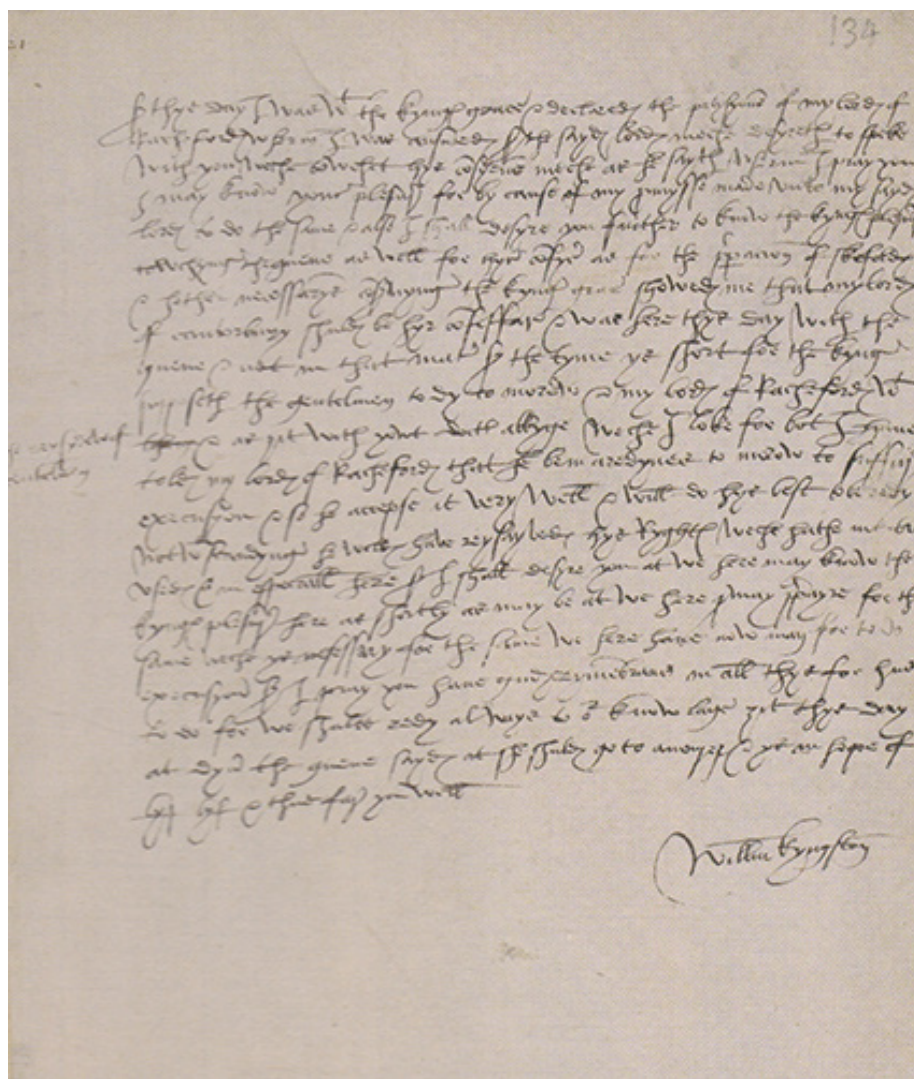 Sr thys day I was wt the kyngs grace & declared the petysyons of my lord of
Rocheford wherin I was answred Sr the sayd lord meche desyreth to speke
with you weche towchet hys consyens meche as he sayth wherin I pray you
I may know your plesur for by cause of my promysse made unto my sayd
lord to do the same & also I shall desyre you further to know the kyngs plesur
towchyng the quene as well for hyr comfyt as for the preparasion of skefolds
& hother necessarys consernyng the kyngs grace showed me that my lord
of cantorbury shuld be hyr confessar & was here thys day with the
quene & not in that matter Sr the tyme ys short for the kyng
supposeth the gentelmen to dy to morow & my lord of Rocheford wt
the reysydew of gentelmen
& as yit with owt weche I loke for bot I have
told my lord of Rocheford that he be in aredynes to morow to suffur
execusyon & so he accepse it very well & will do hys best to be redy
Notwtstandyng he wold have reysayved hys ryghts weche hathe not bene
used & in especiall here Sr I shall desyre you at we here may know the
kyngs plesur here as shortly as may be at we here may prepayre for the
same weche ys nesessary for the same we here have now may for to do
execusyon Sr I pray you have gud rymembrans in all thys for hus
to do for we shalbe redy al ways to or knowlage yit thys day
at dyner the quene sayd at she shuld go to & ys in hope of
lyf & thus far you well
Willm Kyngston
134